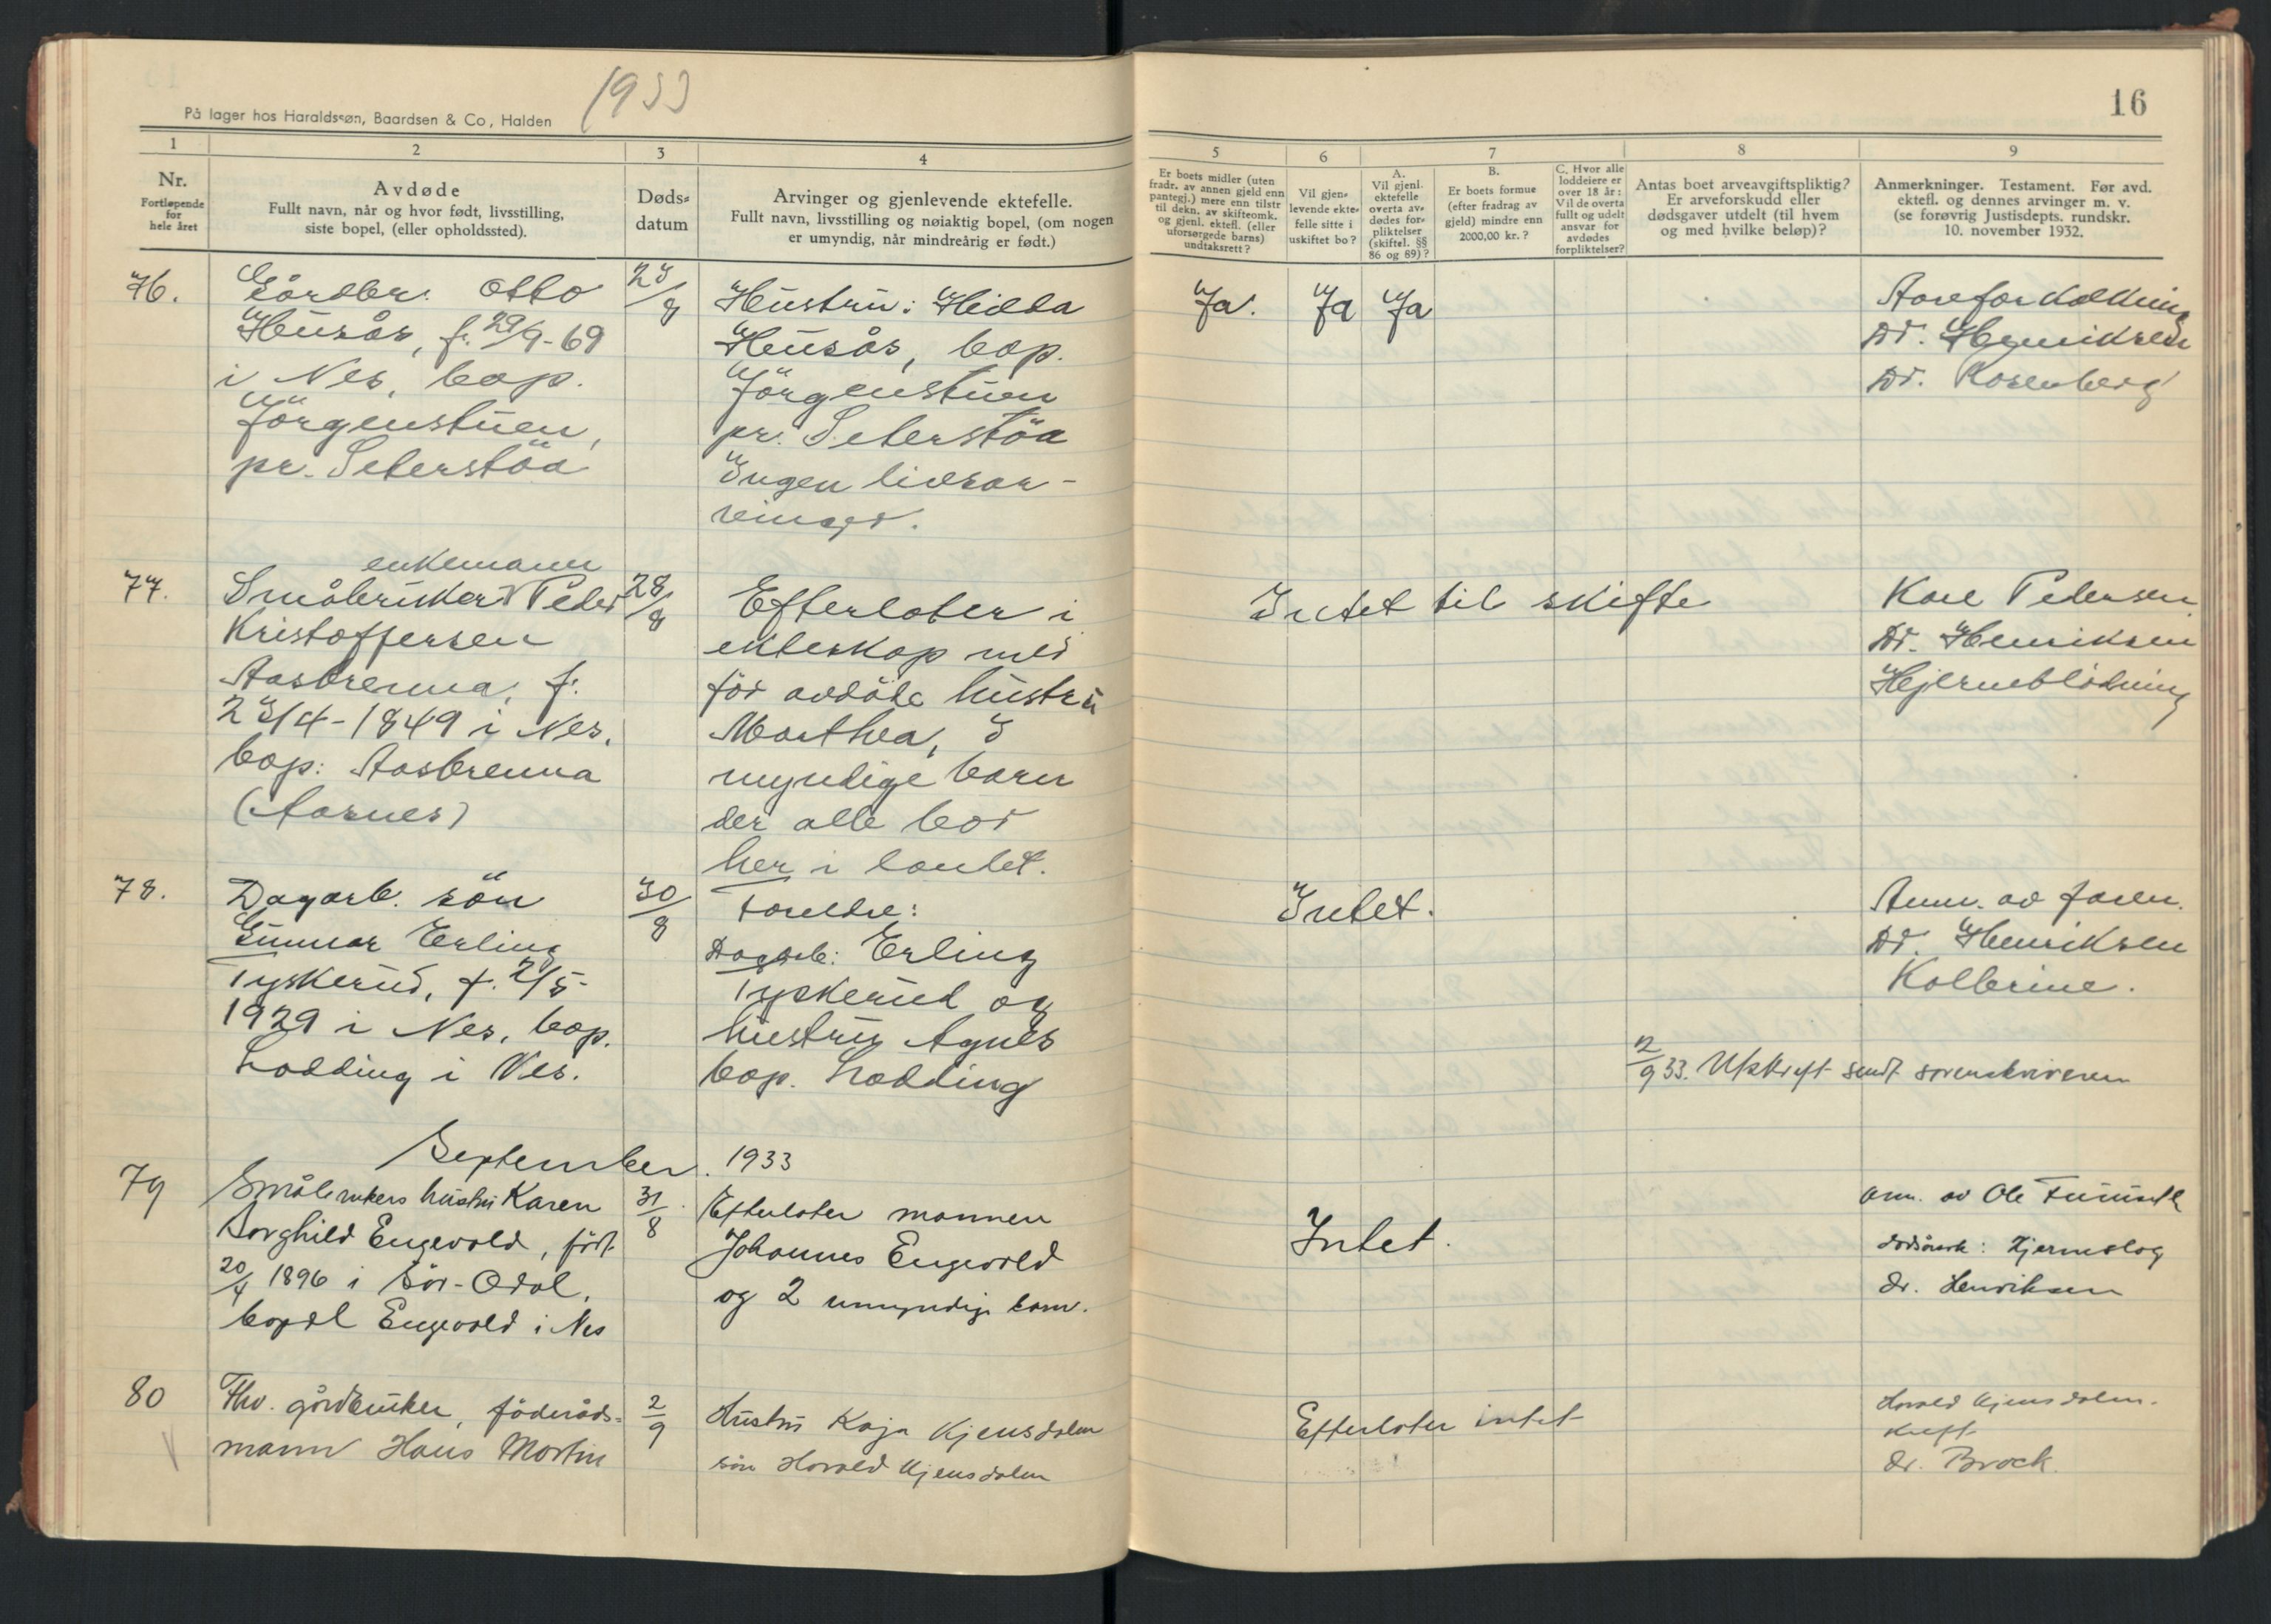 1933
16
På lager hos Haraldssøn, Baardsen & Co, Halden
1
2
3
4
5
6
7
8
9
Nr.
Fortløpende
for
hele året
Avdøde
Fullt navn, når og hvor født, livsstilling,
siste bopel, (eller opholdssted).
Døds-
datum
Arvinger og gjenlevende ektefelle.
Fullt navn, livsstilling og nøiaktig bopel, (om nogen
er umyndig, når mindreårig er født.)
Er boets midler (uten
fradr. av annen gjeld enn
pantegj.) mere enn tilstr
til dekn. av skifteomk.
og gjenl. ektefl. (eller
uforsørgede barns)
undtaksrett?
Vil gjen-
levende ekte-
felle sitte i
uskiftet bo?
A.
Vil gjenl.
ektefelle
overta av-
dødes for-
pliktelser
(skiftel. §§
86 og 89)?
B.
Er boets formue
(efter fradrag av
gjeld) mindre enn
2000,00 kr.?
C. Hvor alle
loddeiere er
over 18 år:
Vil de overta
fullt og udelt
ansvar for
avdødes
forpliktelser?
Antas boet arveavgiftspliktig?
Er arveforskudd eller
dødsgaver utdelt (til hvem
og med hvilke beløp)?
Anmerkninger. Testament. Før avd.
ektefl. og dennes arvinger m. v.
(se forøvrig Justisdepts. rundskr.
10. november 1932.
76.
Gårdbr. Otto
Husås, f. 29/9-69
i Nes, bop.
Jörgenstuen,
pr. Seterstöa
23/8
Hustru: Hilda
Husås, bop.
Jörgenstuen
pr. Seterstöa
Ingen livsar-
vinger.
Ja.
Ja
Ja
Aareforkalkning
Dr. Henriksen
Dr. Rosenberg
77.
enkemann
Småbruker Peder
Kristoffersen
Aasbrenna, f.
23/4-1849 i Nes.
bop: Aasbrenna
(Aarnes)
28/8
Efterlater i
ekteskap med
för avdöde hustru
Marthea, 3
myndige barn
der alle bor
her i landet.
Intet til skifte
Karl Pedersen
Dr. Henriksen
Hjerneblödning
78.
Dagarb. sön
Gunnar Erling
Tyskerud, f. 2/5-
1929 i Nes, bop.
Lodding i Nes.
30/8
Foreldre:
Dagarb: Erling
Tyskerud og
hustru Agnes
bop. Lodding
Intet.
Anm. av faren.
Dr. Henriksen
Kolerine.
12/9 33. Utskrift sendt sorenskriveren
September. 1933
79
Småbrukers hustru Karen
Borghild Engevold, född
20/4 1896 i Sör-Odal,
bopel Engevold i Nes
31/8
Efterlater mannen
Johannes Engevold
og 2 umyndige barn.
Intet.
anm. av Ole
dödsårsak: Hjerneslag
dr. Henriksen
80
Fhv. gårdbruker, föderåds-
mann Hans Martin
2/9
Hustru Kaja Kjensdalen
sön Harald Kjensdalen
Efterlater intet
Harald Kjensdalen.
Kreft
dr. Brock.